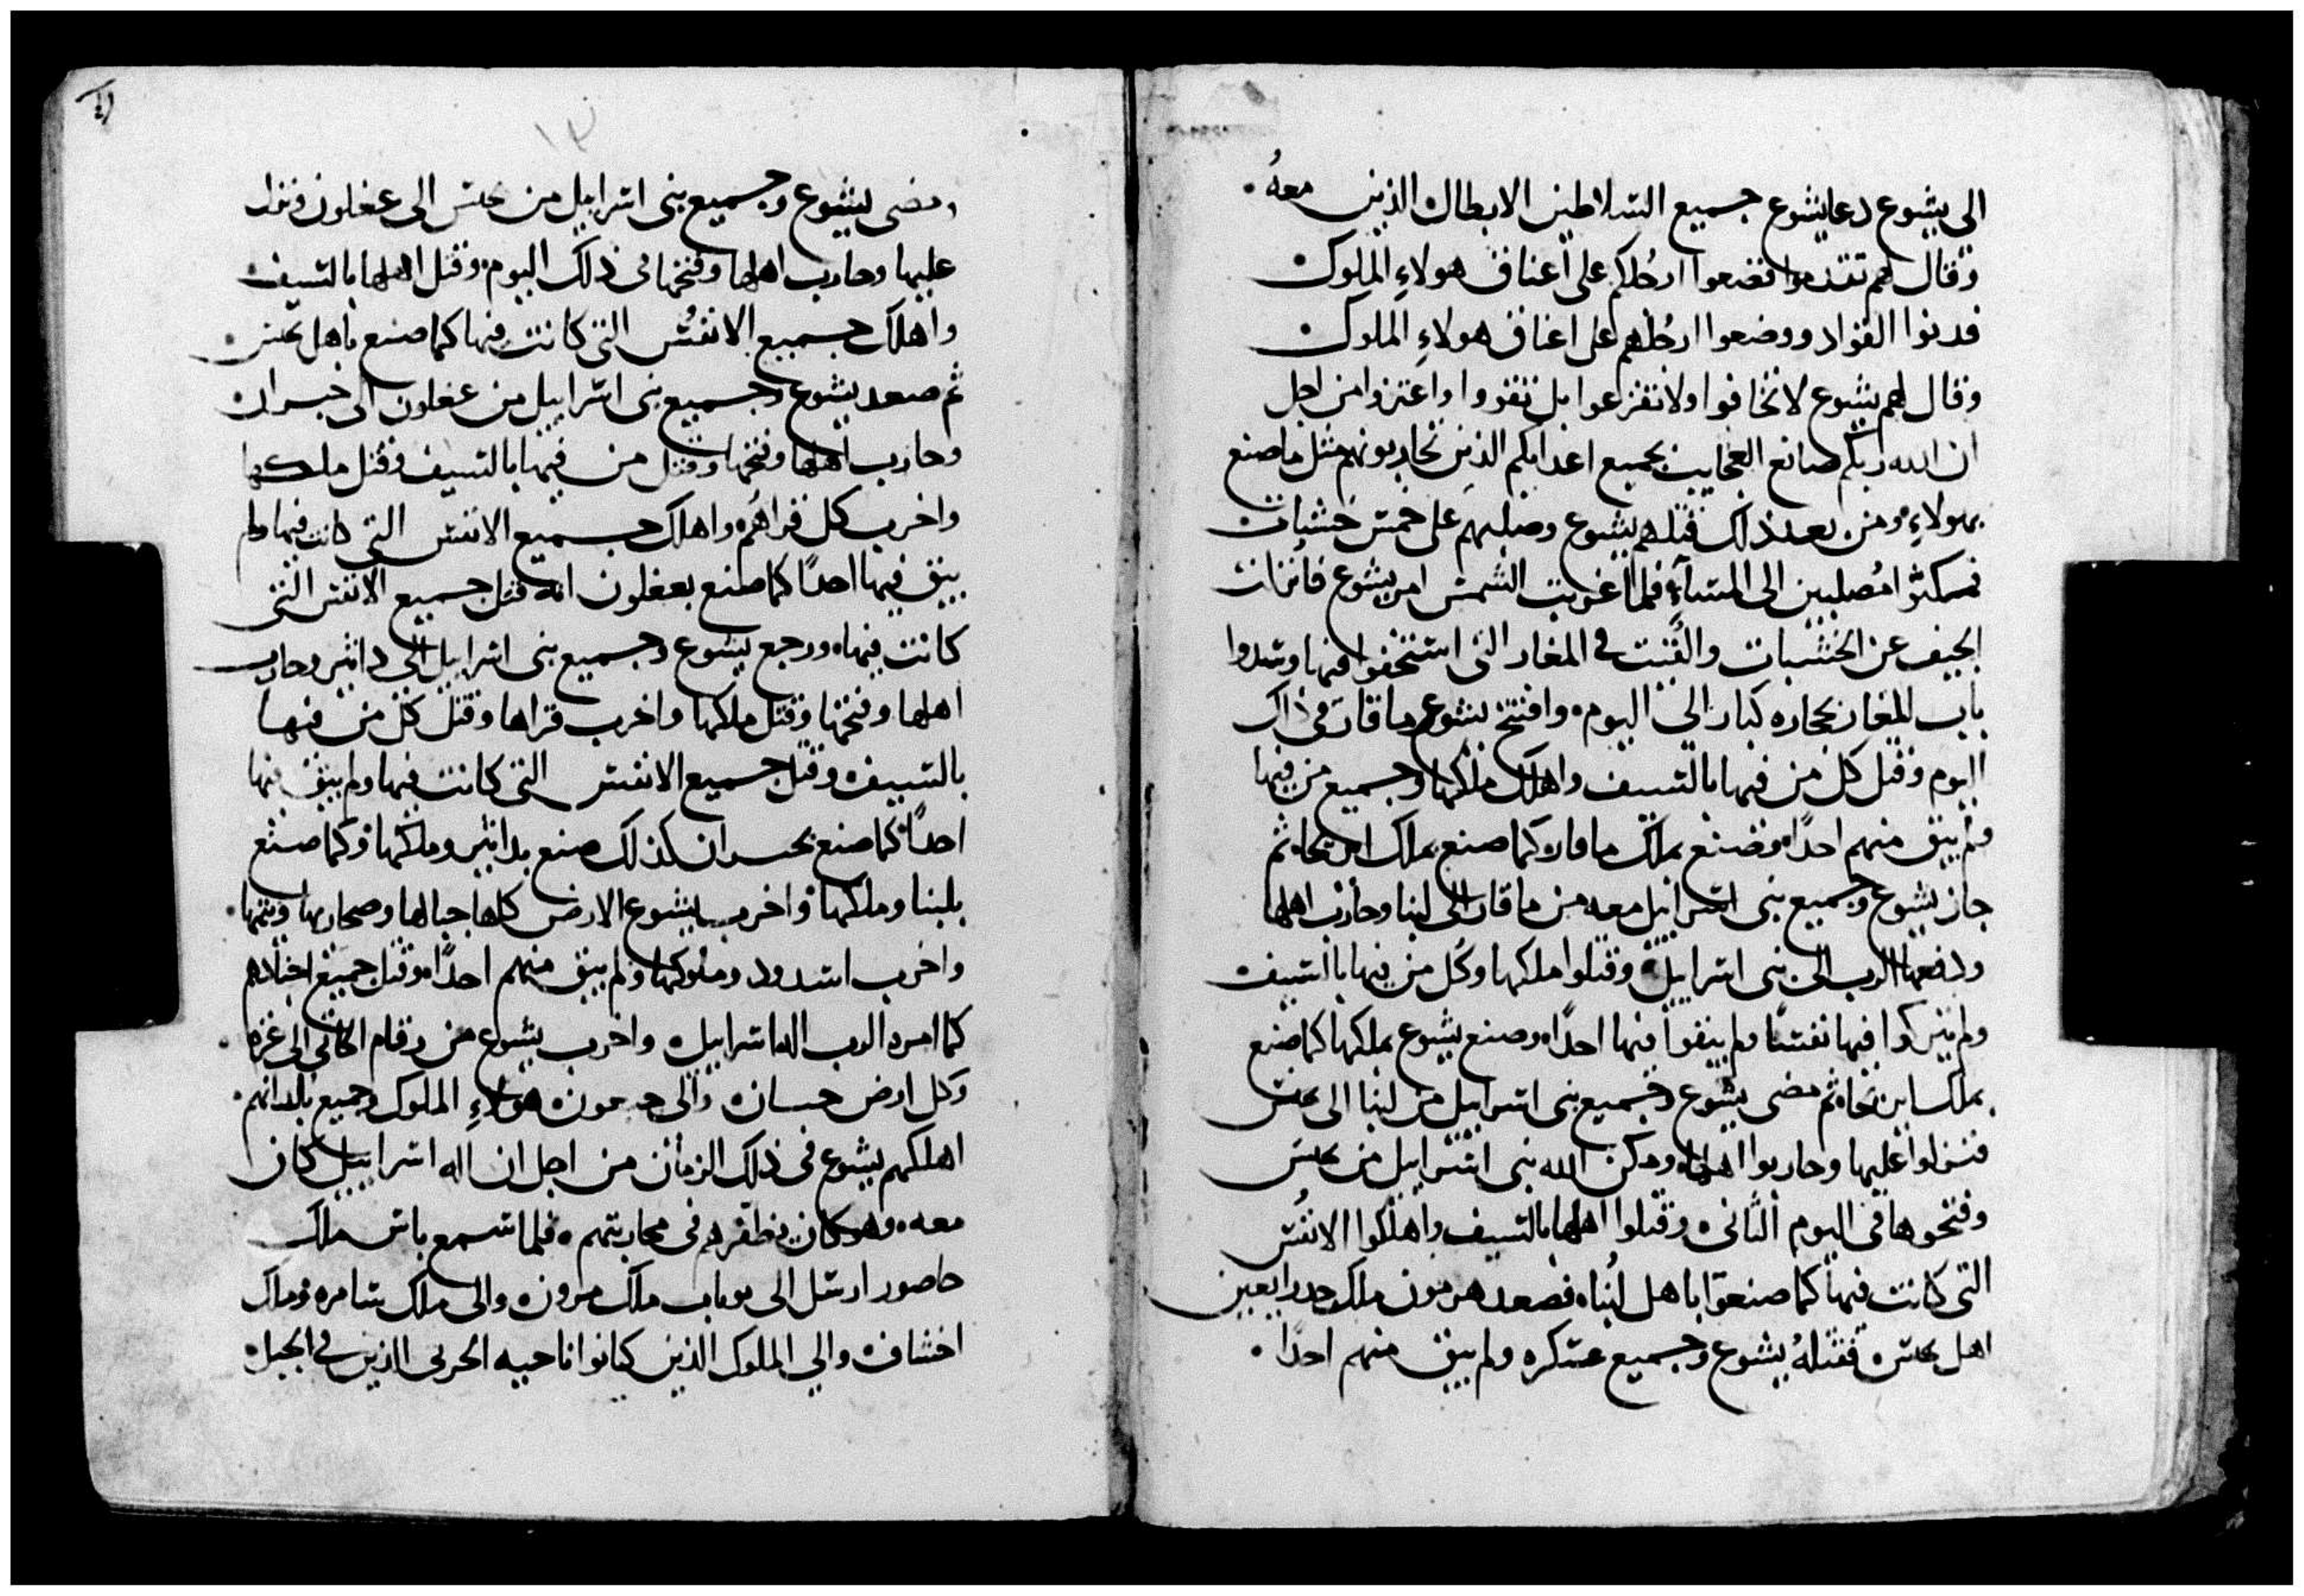 الى يشوع دعا يشوع جميع السلاطين الابطال الذين معهُ
وقال لهم تقدموا فضعوا ارجُلكم على اعناق هولاءِ الملوك
فدنوا القواد ووضعوا ارجُلهم على اعناق هولاءِ الملوك
وقال لهم يشوع لا تخافوا ولا تفزعوا بل تقووا واعتزوا من اجل
ان الله ربكم صانع العجايب بجميع اعدايكم الذين تحاربونهم مثل ما صنع
بهولاءِ ومن بعد ذلك قتلهم يشوع وصلبهم على خمس خشبات
فمكثوا مُصلبين الى المساءِ فلما غربت الشمس امر يشوع فانزلت
الجيف عن الخشبات والقيت في المغار التى استخفوا فيها وسدوا
باب المغار بحجاره كبار الى اليوم وافتتح يشوع ماقار في ذلك
اليوم وقتل كل من فيها بالسيف واهلك ملكها وجميع من فيها
ولم يبق منهم احدًا وصنع بملك ماقار كما صنع بملك اريحا ثم
جاز يشوع وجميع بنى اسرايل معه من ماقار الى لبنا وحارب اهلها
ودفعها الرب الى بنى اسراييل وقتلوا ملكها وكُل من فيها بالسيف
ولم يتركوا فيها نفسًا ولم يبقوا فيها احدًا وصنع يشوع بملكها كما صنع
بملك اريحا ثم مضى يشوع وجميع بنى اسراييل من لبنا الى
فنزلوا عليها وحاربوا اهلها ومكن الله بنى اسراييل من
وفتحوها في اليوم الثانى وقتلوا اهلها بالسيف واهلكوا الانفُس
التى كانت فيها كما صنعوا باهل لبُنا فصعد هرمون ملك
اهل فقتلهُ يشوع وجميع عسكره ولم يبق منهم احدًا
ومضى يشوع وجميع بنى اسراييل من الى عغلون ونزل
عليها وحارب اهلها وفتحها فى ذلك اليوم وقتل اهلها بالسيف
واهلك جميع الانفُس التى كانت فيها كما صنع باهل
ثم صعد يشوع وجميع بنى اسراييل من عغلون الى حبران
وحارب اهلها وفتحها وقتل من فيها بالسيف وقتل ملكها
واخرب كل قراهُم واهلك جميع الانفس التى كانت فيها ولم
يبق فيها احدًا كما صنع بعغلون انه قتل جميع الانفس التى
كانت فيها ورجع يشوع وجميع بنى اسراييل الى دابير وحارب
اهلها وفتحها وقتل ملكها واخرب قراها وقتل كل من فيها
بالسيف وقتل جميع الانفس التى كانت فيها ولم يبق فيها
احدًا كما صنع بحبران كذلك صنع بدابير وملكها وكما صنع
بلبنا وملكها واخرب يشوع الارض كلها جبالها وصحاريها
واخرب اسدود وملوكها ولم يبق منهم احدًا وقتل جميع
كما امره الرب اله اسراييل واخرب يشوع من رقام الى غزه
وكل ارض والى هولاءِ الملوك وجميع بلدانهم
اهلكهم يشوع في ذلك الزمان من اجل ان اله اسراييل كان
معه وهو كان يظفرهم فى محاربتهم فلما سمع ملك
حاصور ارسل الى يوباب ملك مرون والى ملك سامره وملك
اخشاف والي الملوك الذين كانوا ناحيه الحربى الذين في الجبل